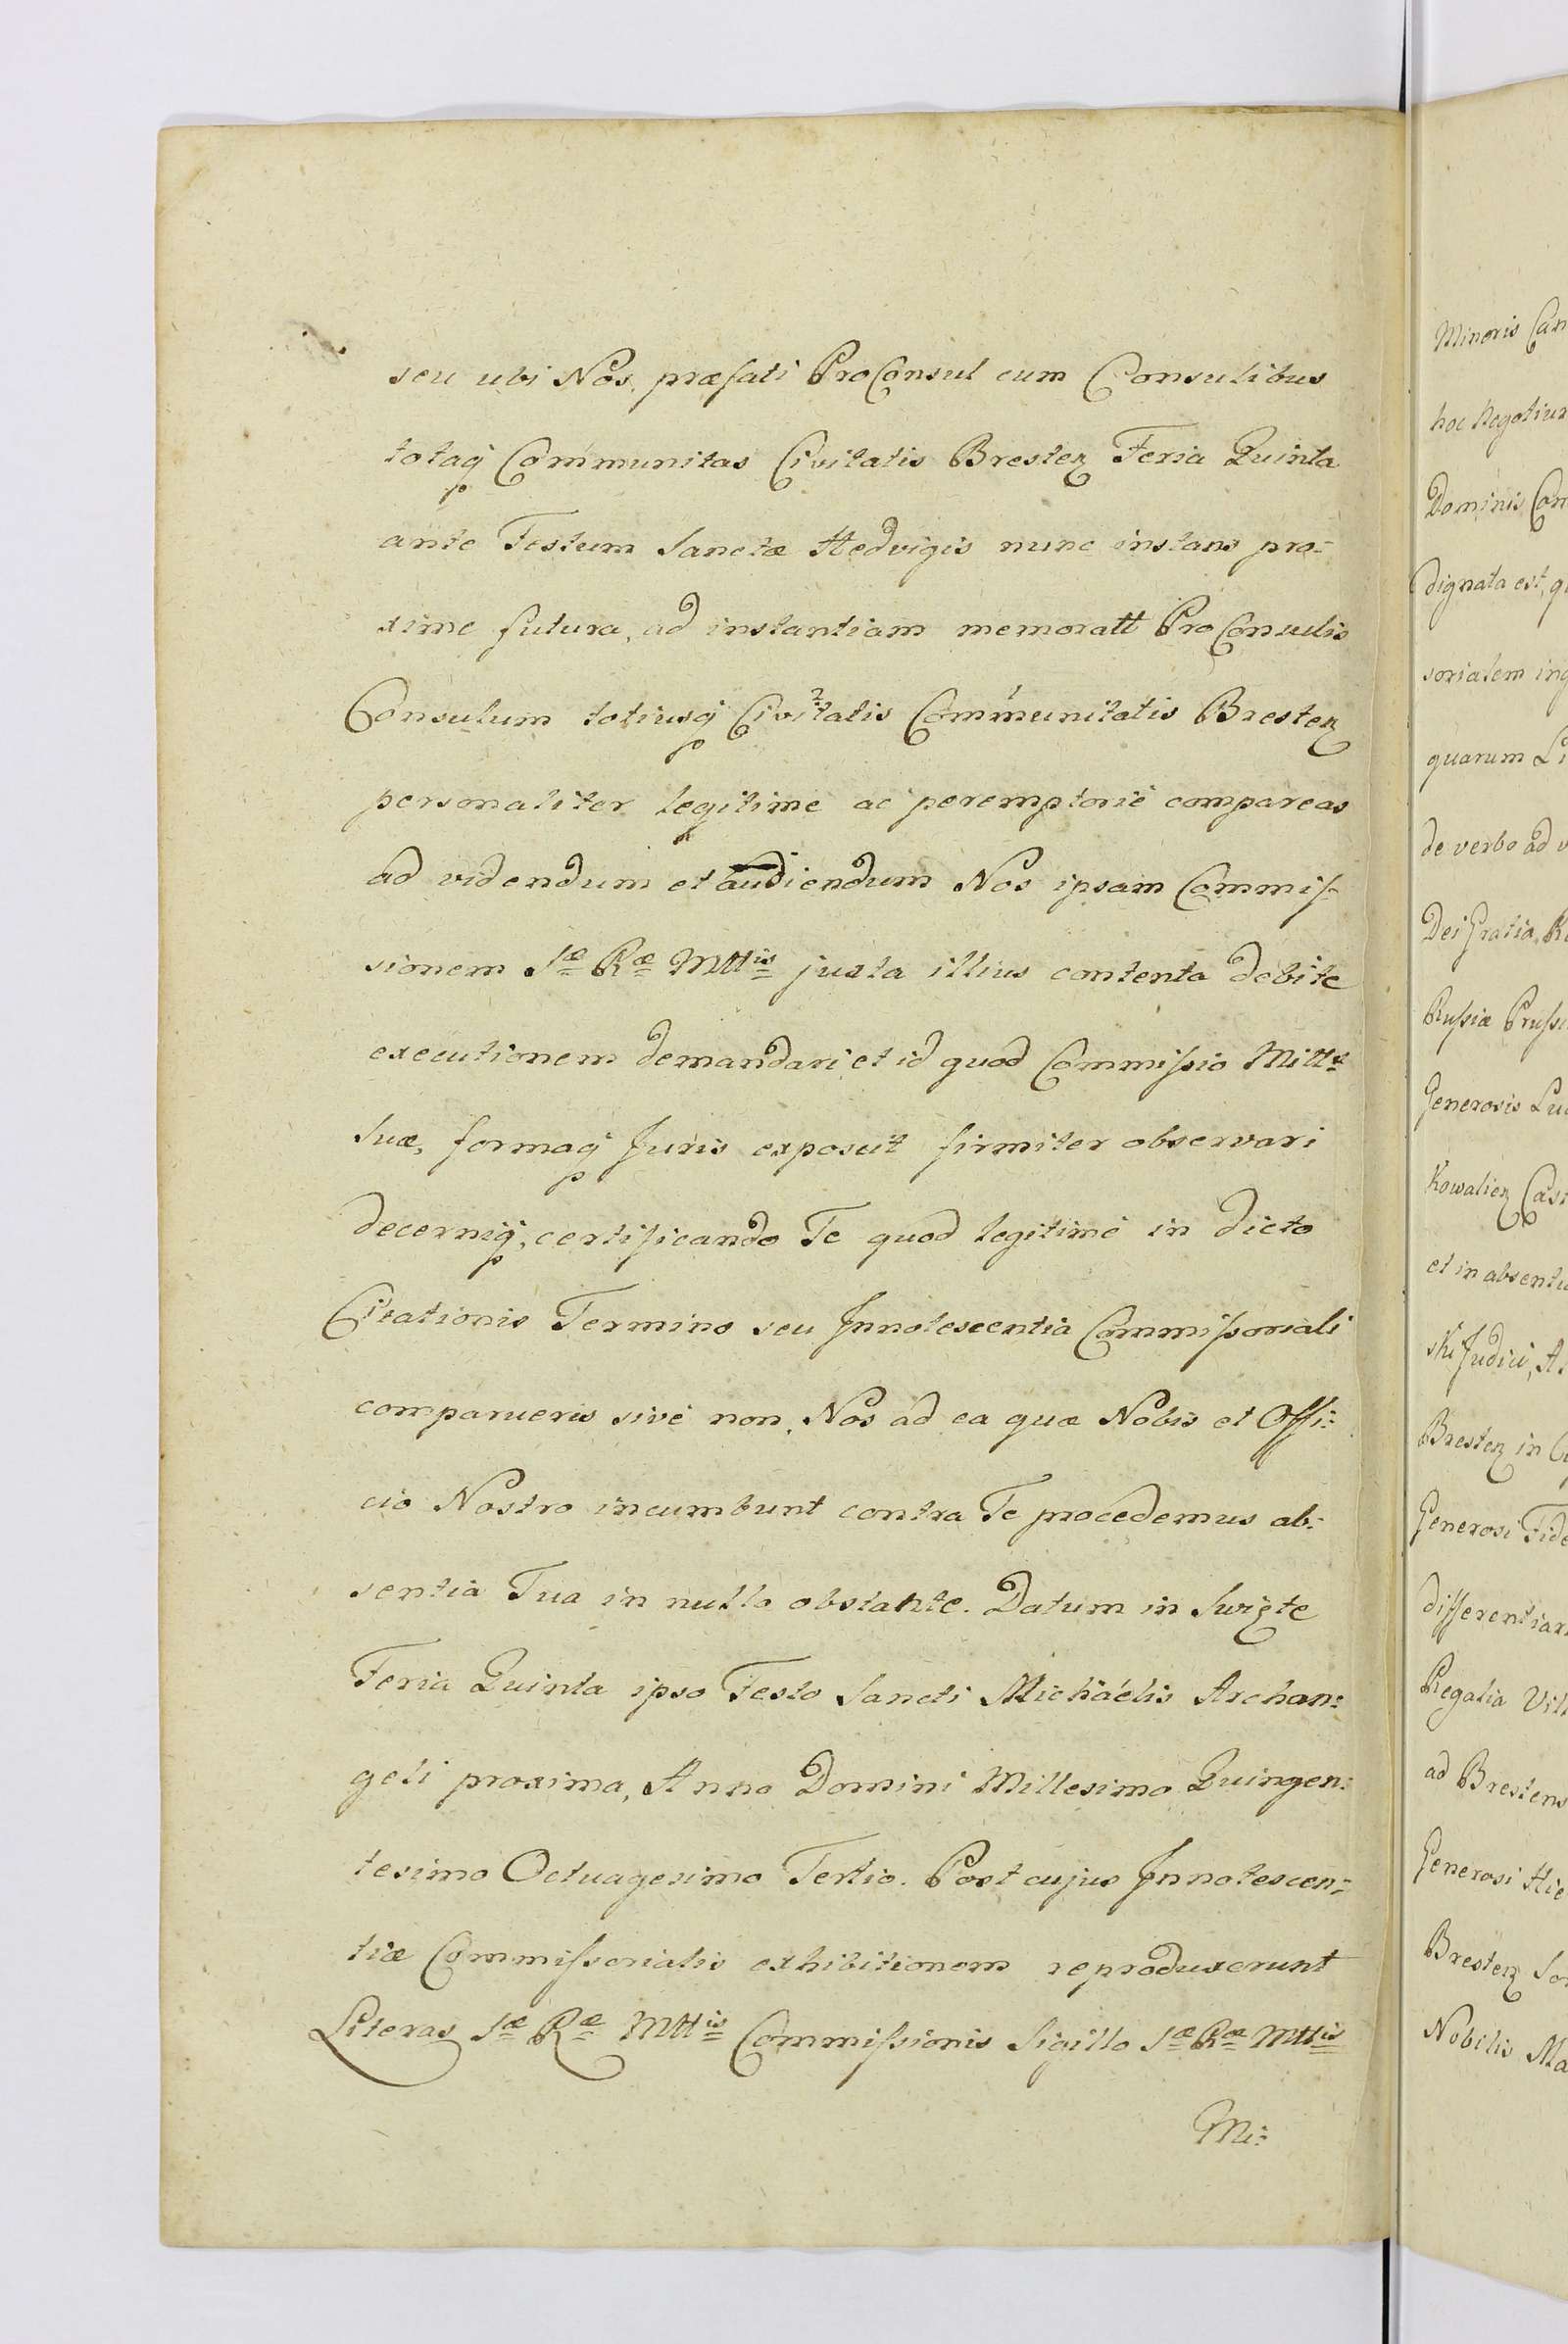 seu ubi Nos, præfati ProConsul cum Consulibus
totaq Communitas Civitatis Bresten Feria Quinta
ante Festum Sanctæ Hedvigis nunc instans pro=
xime futura, ad instantiam memoratt ProConsulis
Consulum totiusq Civitatis Communitatis Bresten
personaliter legitime ac peremptorie compareas
ad videndum et audiendum Nos ipsam Commis=
sionem Sæ Ræ Mttis juxta illius contenta debite
executionem demandari et id quod Commissio Mitts
Suæ, formaq Juris exposcit firmiter observari
decerniq, certificando Te quod legitime in dicto
Citationis Termino seu Innotescentia Commissoriali
comparueris sive non, Nos ad ea quæ Nobis et Offi=
cio Nostro incumbunt contra Te procedemus ab=
sentia Tua in nullo obstante. Datum in Swięte
Feria Quinta ipso Festo Sancti Michaelis Archan=
geli proxima, Anno Domini Millesimo Quingen=
tesimo Octuagesimo Tertio. Post cujus Innotescen=
tiæ Commissorialis exhibitionem reproduxerunt
Literas Sæ Ræ Mttis Commissionis Sigillo Sæ Ræ Mttis
Mi=
Minoris Can
hoc Negotium
Dominis Con
dignata est, q
sorialem in
quarum Li
de verbo ad v
Dei Gratia, R
Russiæ Prussi
Generosis Lu
Kowalien Cas
et in absenti
ski Judici, A
Bresten in C
Generosi Fide
differentiar
Regalia Vill
ad Brestens
Generosi Hie
Bresten So
Nobilis Ma